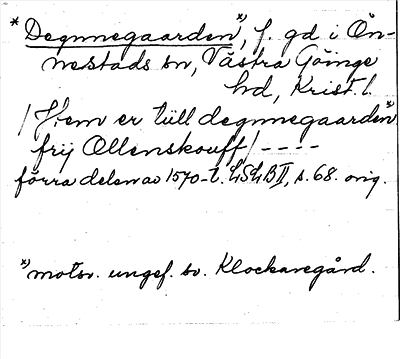 * Degnnegaarden*), f. gd i Ön-
nestads sn, Västra Göinge
hd, Krist. l.
/ Jtem er tiill degnnegaarden*)
frij Ollenskouff / - - - -
förra delen av 1570-t. LSLB II, s. 68. orig.
*) motsv. ungef. sv. Klockaregård.